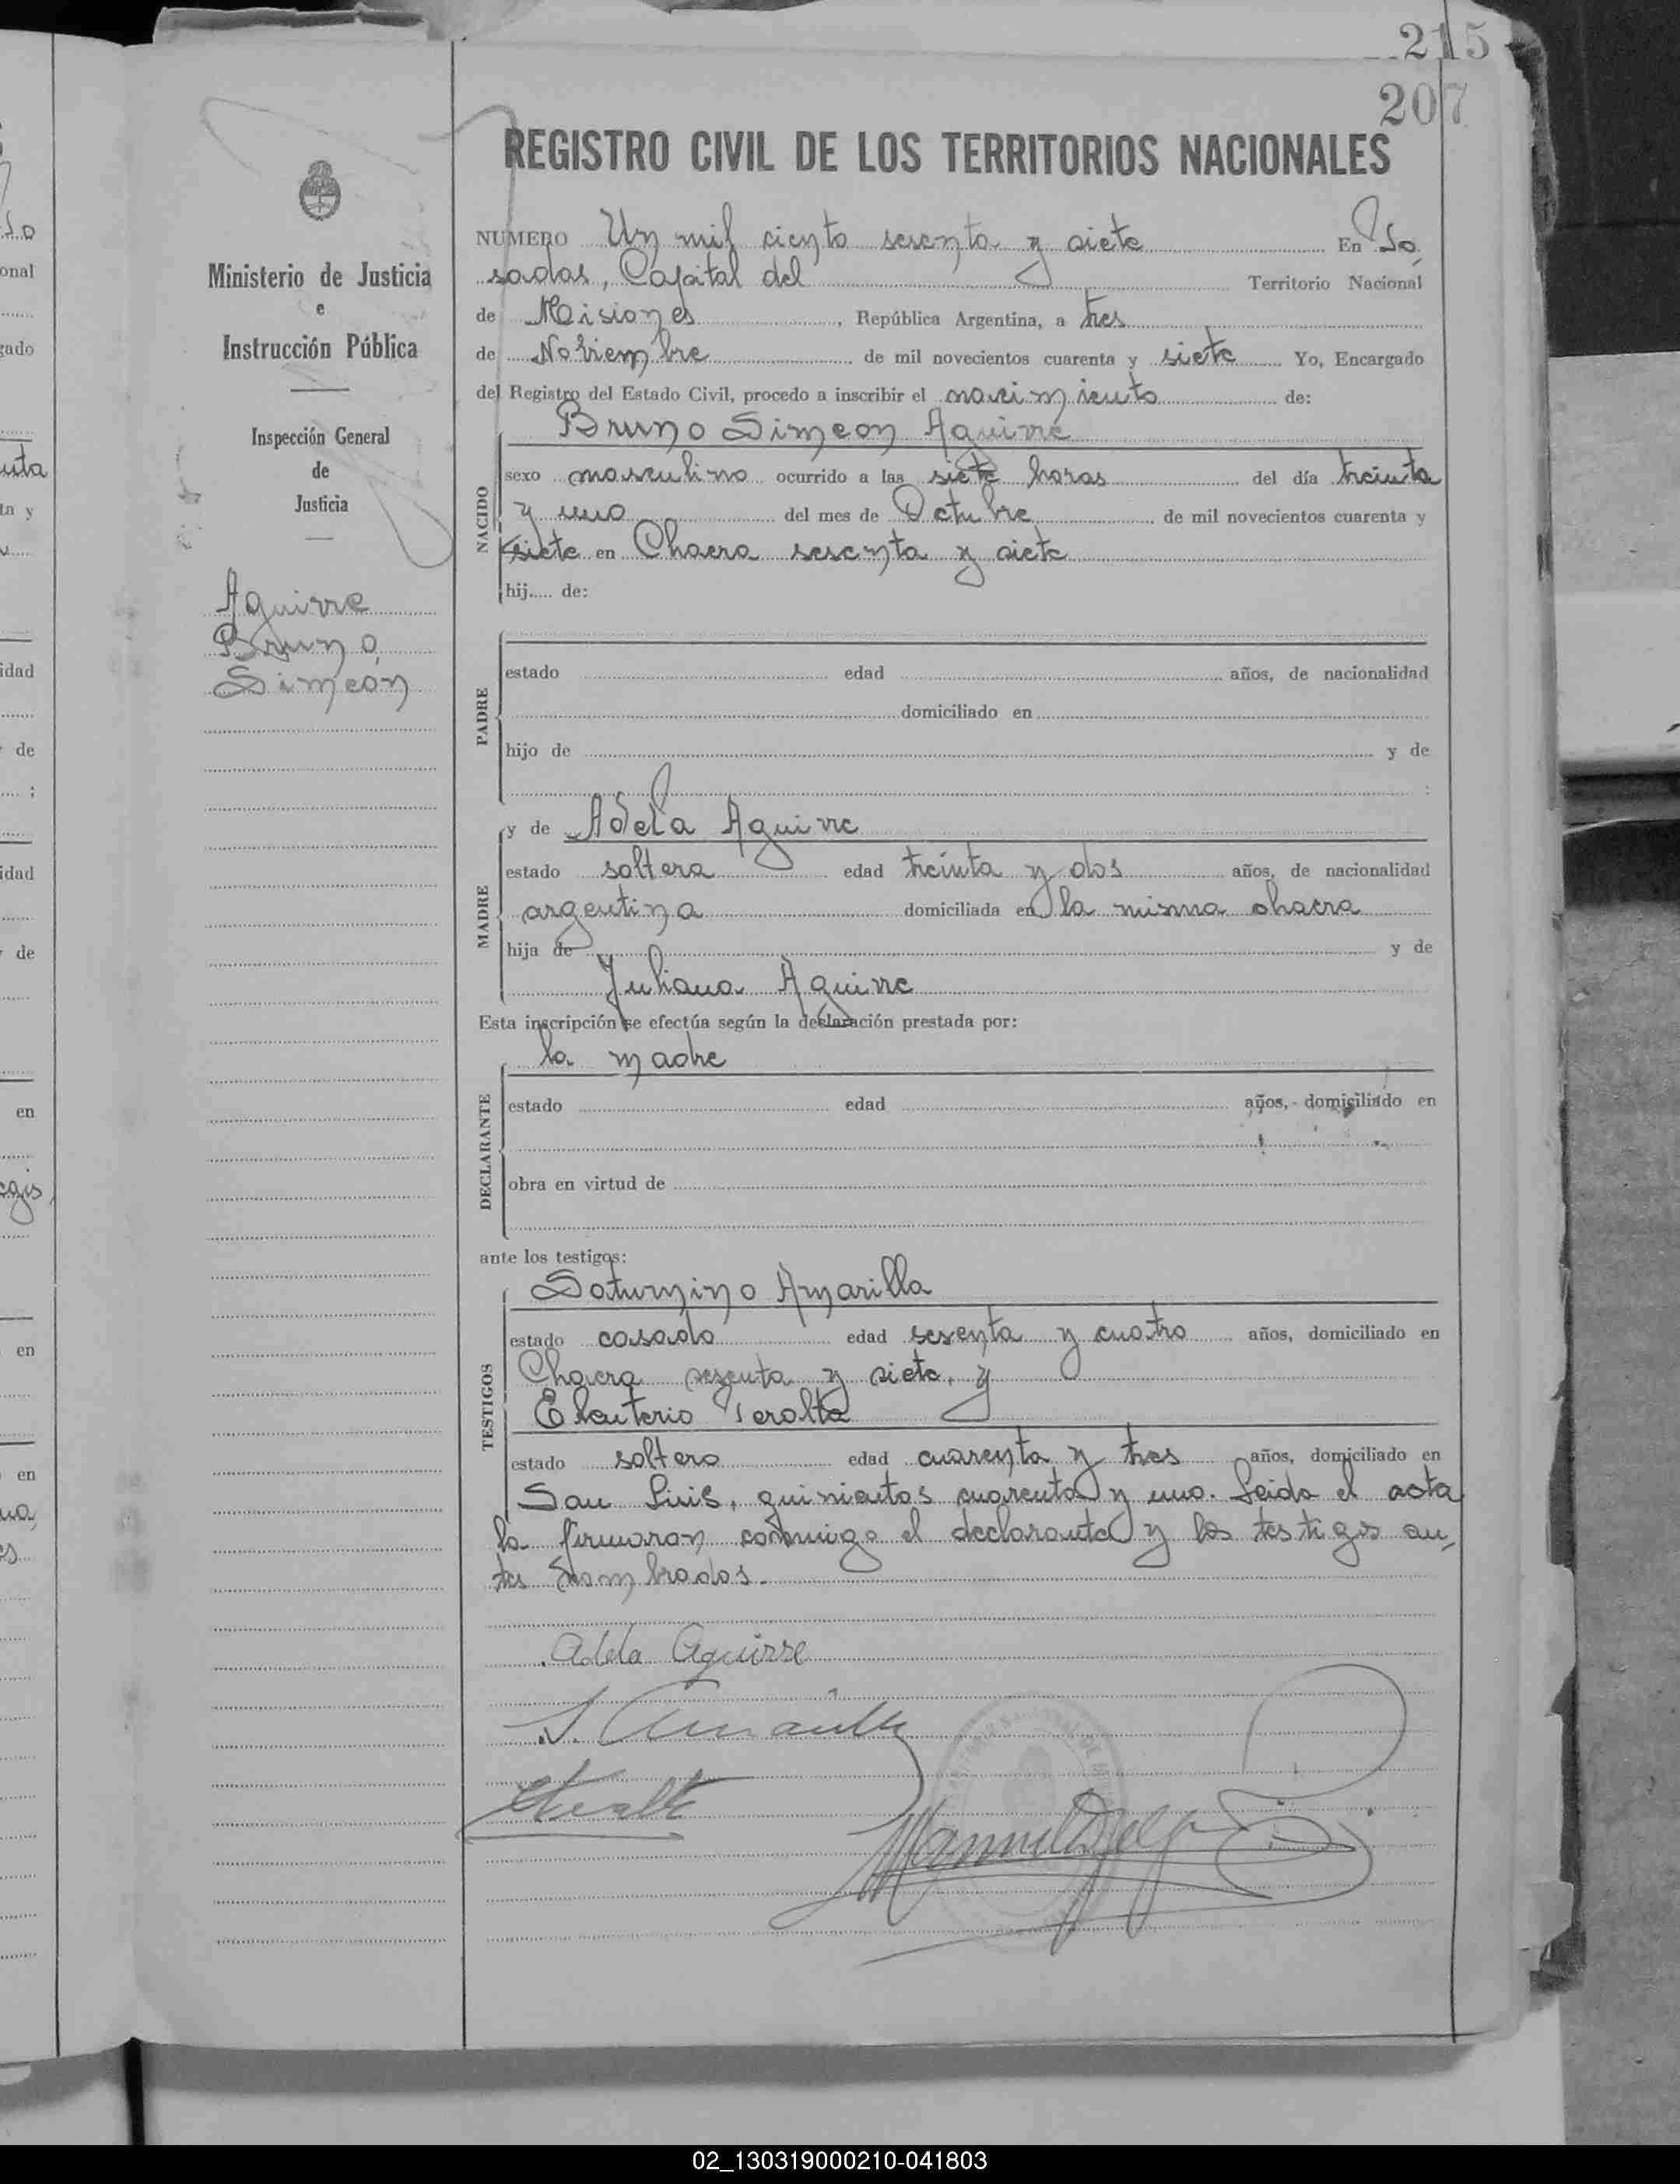 215
207
REGISTRO CIVIL DE LOS TERRITORIOS NACIONALES
Ministerio de Justicia
e
Instrucción Pública
Inspección General
de
Justicia
Aguirre
Bruno
Simeon
NUMERO Un mil ciento sesenta y siete En Po
sadas, Capital del Territorio Nacional
de Misiones, República Argentina, a tres
de Noviembre de mil novecientos cuarenta y siete Yo, Encargado
del Registro del Estado Civil, procedo a inscribir el nacimiento de:
Bruno Simeon Aguirre
NACIDO
sexo masculino ocurrido a las siete horas del día treinta
y uno del mes de Octubre de mil novecientos cuarenta y
siete en Chacra sesenta y siete
hij.... de:
PADRE
estado edad años, de nacionalidad
domiciliado en
hijo de y de
MADRE
y de Adela Aguirre
estado soltera edad treinta y dos años, de nacionalidad
argentina domiciliada en la misma chacra
hija de y de
Juliana Aguirre
Esta inscripción se efectúa según la declaración prestada por:
la madre
DECLARANTE
estado edad años, domiciliado en
obra en virtud de
ante los testigos:
Saturnino Amarilla
TESTIGOS
estado casado edad sesenta y cuatro años, domiciliado en
Chacra sesenta y siete, y
Eleuterio Peralta
estado soltero edad cuarenta y tres años, domiciliado en
San Luis, quinientos cuarenta y uno. Leida el acta
la firmaron conmigo el declarante y los testigos an,
tes nombrados.
Adela Aguirre
S. Amarilla
02_130319000210-041803